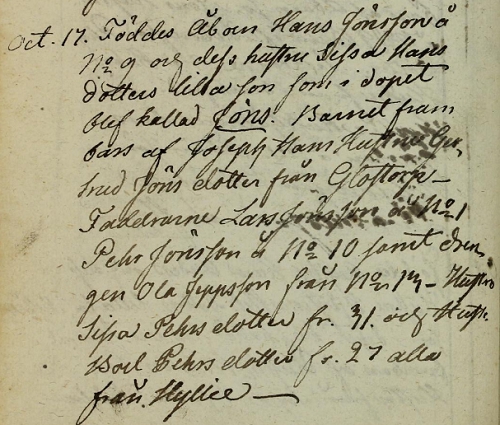 Oct. 17. Föddes Åboen Hans Jönsson å
No 9 och dess hustru Sissa Hans
dotters lilla son som i dopet
blef kallad Jöns. Barnet fram
bars af Joseph Hans Hustru Ger,
trud Jöns dotter från Glostorp –
Faddrarne Lars Jönsson å No 1
Pehr Jönsson å No 10 samt dren,
gen Ola Jeppsson från No – Hustru
Sissa Pehrs dotter fr. 31. och Hust.
Boel Pehrs dotter fr. 27 alla
från Hyllie –